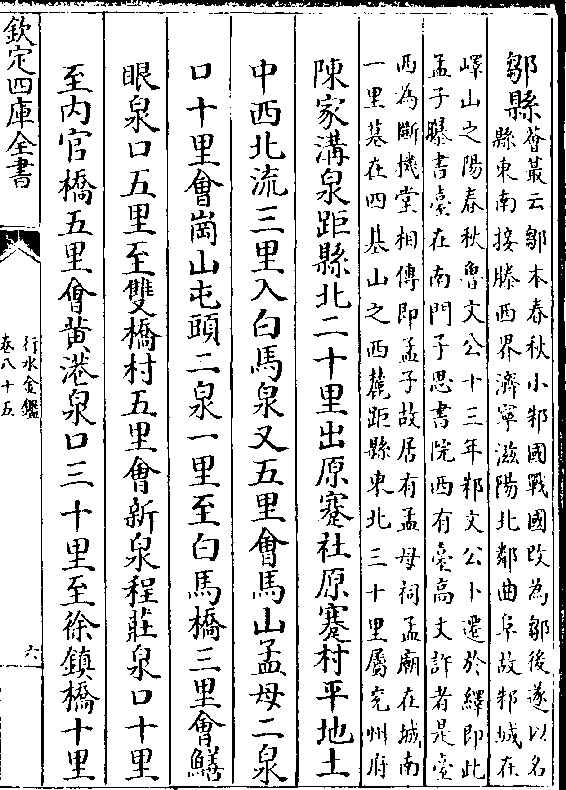 鄒縣
薈蕞云鄒本春秋小邾國戰國改為鄒後遂以名
縣東南接滕西界濟寧滋陽北鄰曲阜故邾城在
嶧山之陽春秋魯文公十三年邾文公卜遷於繹即此
孟子曝書臺在南門子思書院西有臺高丈許者是臺
西為斷機堂相傳即孟子故居有孟母祠孟廟在城南
一里墓在四基山之西麓距縣東北三十里屬兖州府
陳家溝泉距縣北二十里出原蹇社原蹇村平地土
中西北流三里入白馬泉又五里會馬山孟母二泉
口十里會崗山屯頭二泉一里至白馬橋三里會鱔
眼泉口五里至雙橋村五里會新泉程莊泉口十里
至内官橋五里會黄港泉口三十里至徐鎮橋十里
欽定四庫全書
行水金鑑
卷八十五
六